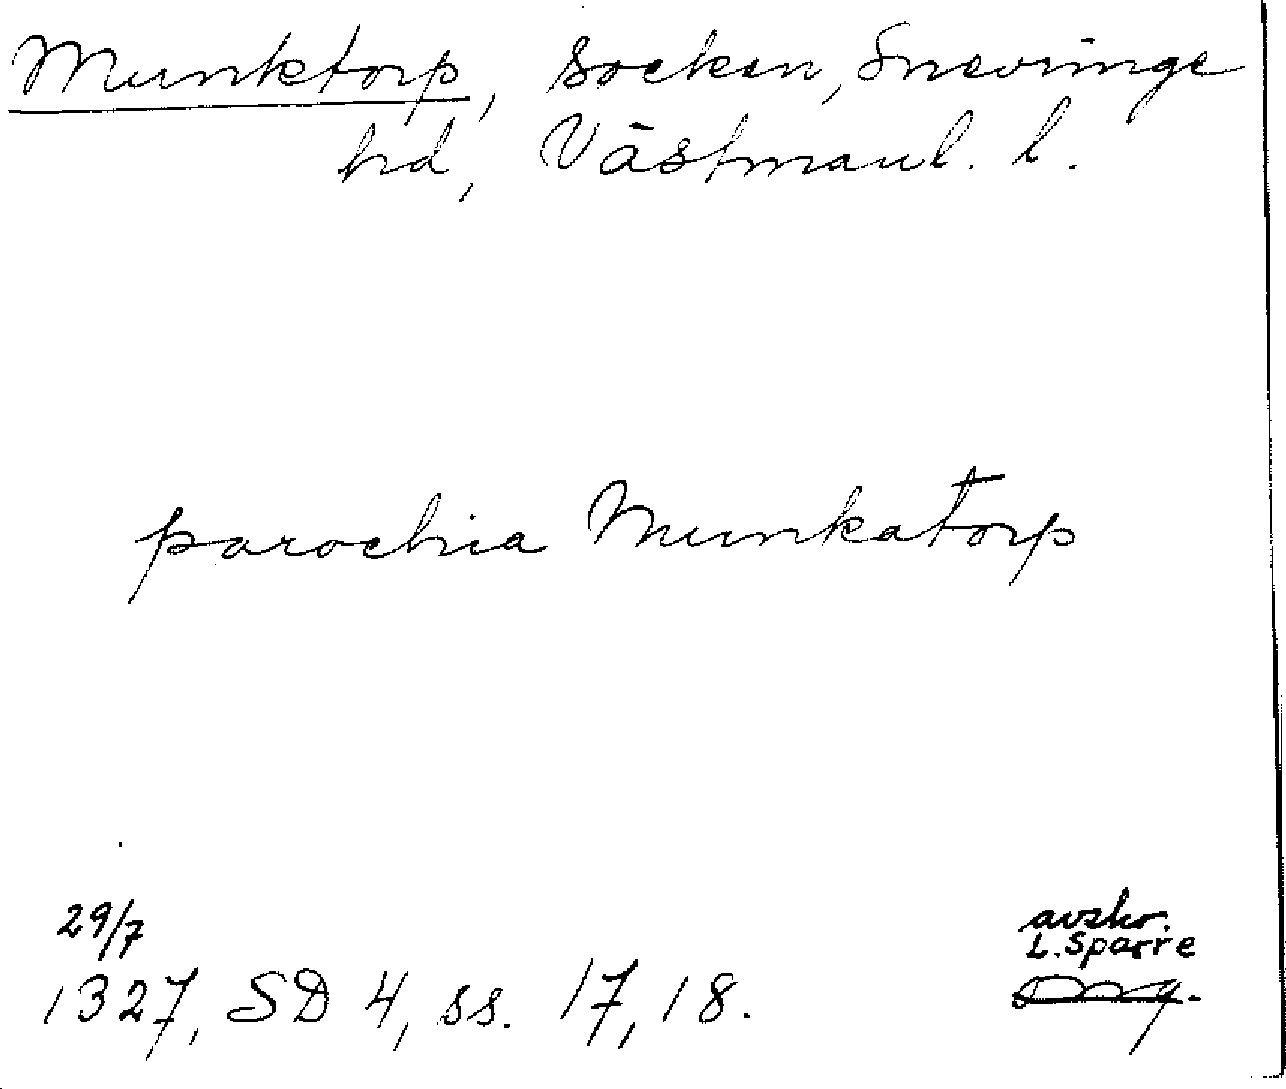 Munktorp, socken, Snevringe
hd, Västmanl. l.
parochia Munkatorp
29/7
1327, SD 4, ss. 17, 18.
avskr.
L. Sparre